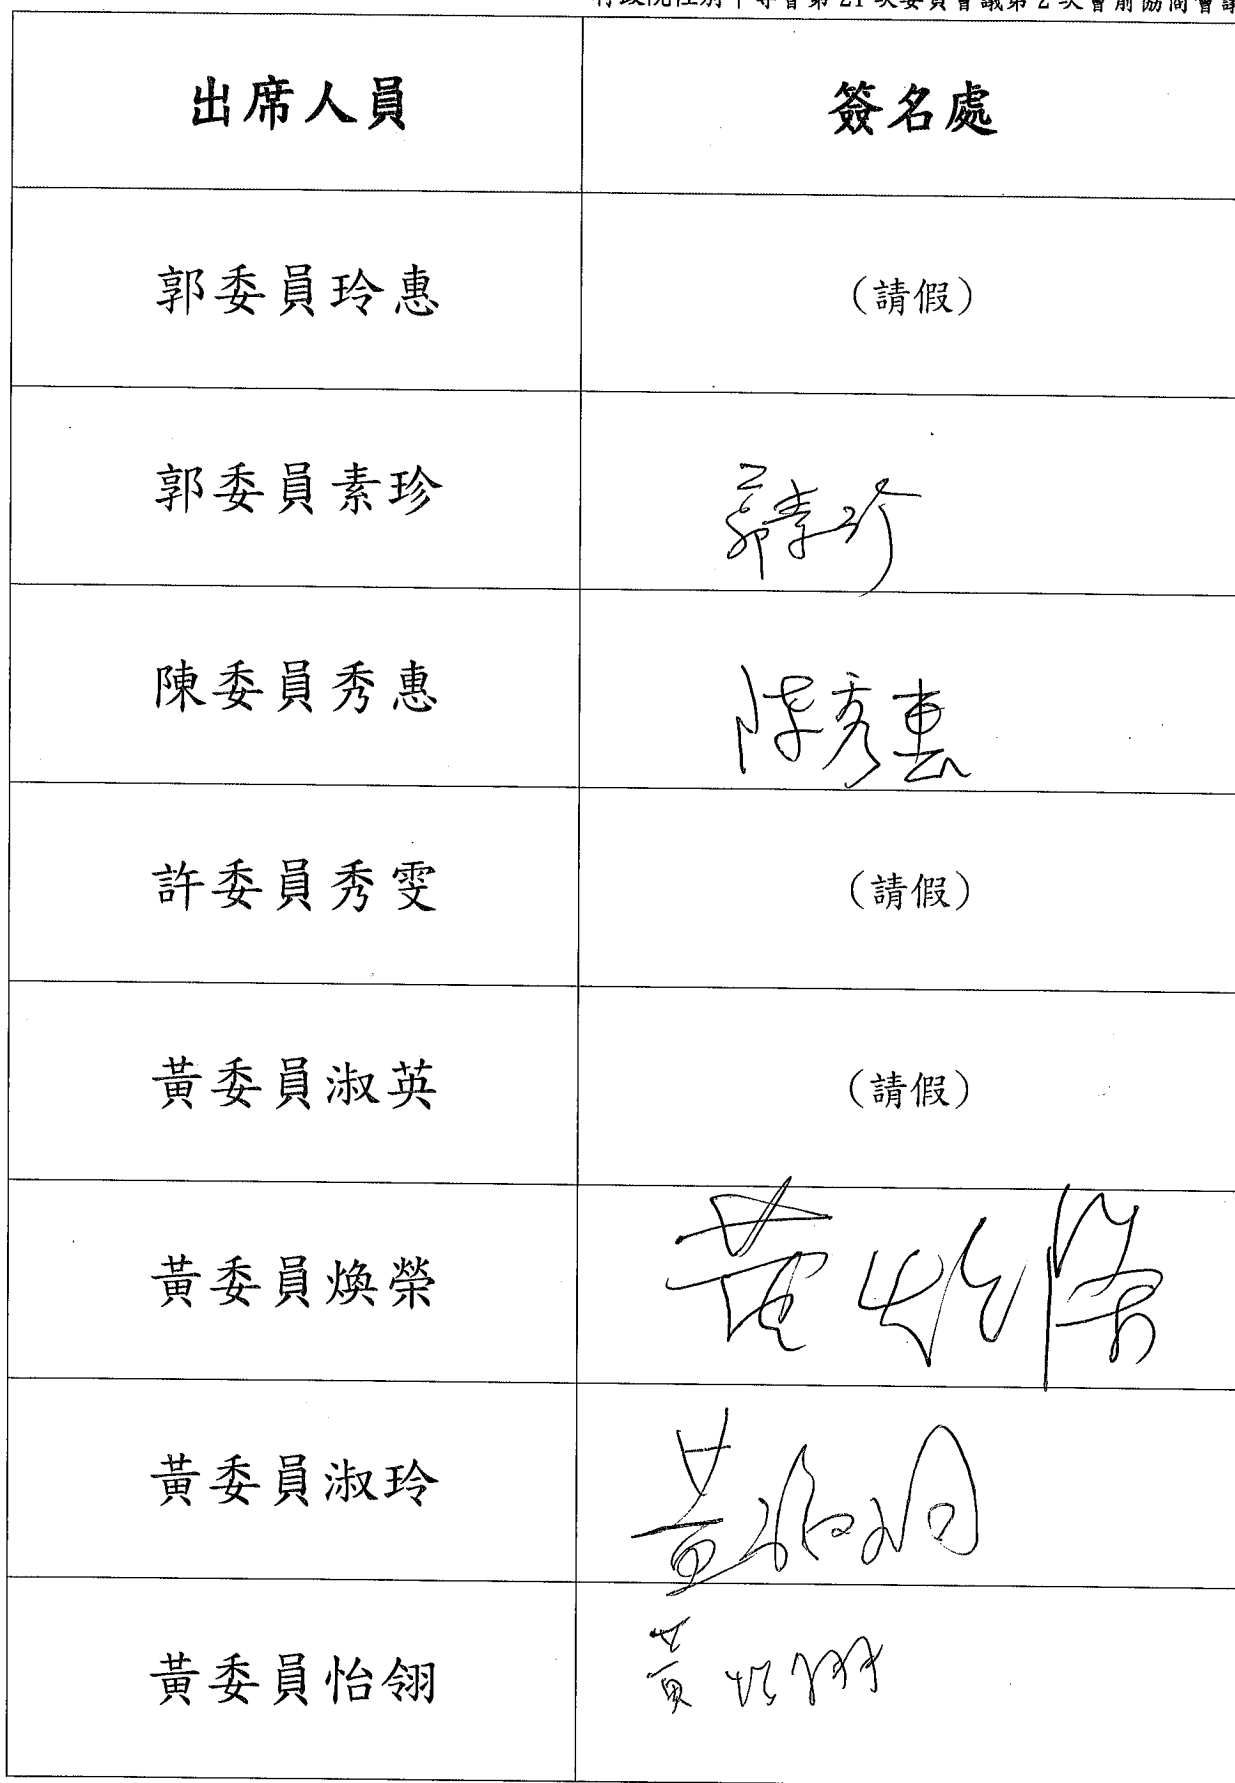 行政院性別平等會第21次委員會議第2次會前協商會議
出席人員 簽名處
郭委員玲惠 (請假)
郭委員素珍 郭素珍
陳委員秀惠 陳秀惠
許委員秀雯 (請假)
黃委員淑英 (請假)
黃委員煥榮 黃煥榮
黃委員淑玲 黃淑玲
黃委員怡翎 黃怡翎